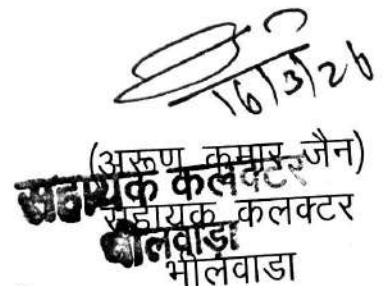 16/3/26
(अरूण कुमार जैन)
सहायक कलक्टर
सहायक कलक्टर
भीलवाड़ा
भीलवाडा